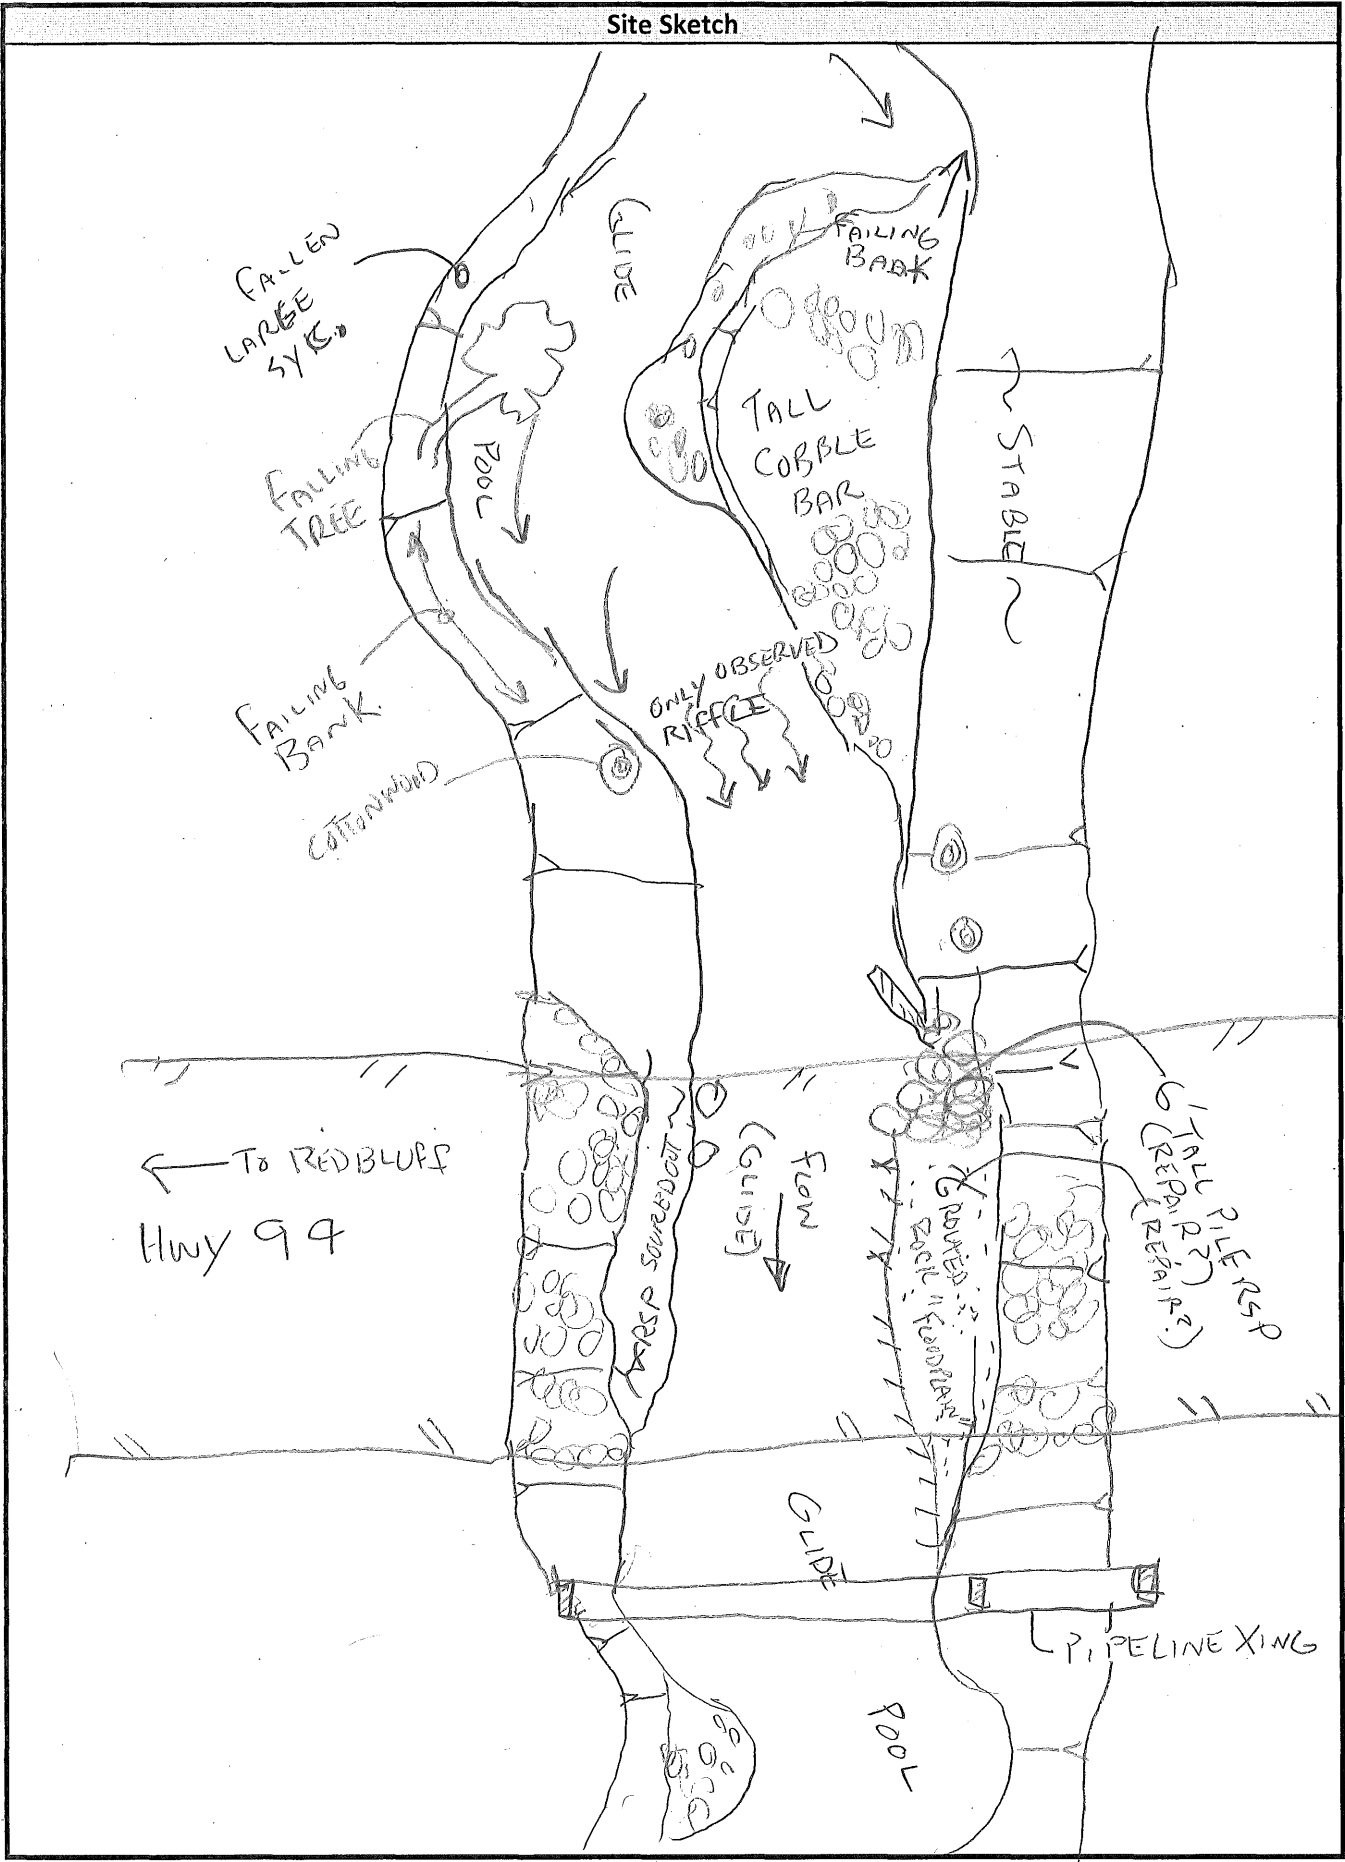 Site Sketch
GLIDE
FALLEN
LARGE
SYC.
FAILING
BANK
TALL
COBBLE
BAR
~ STABLE ~
POOL
FALLING
TREE
FAILING
BANK.
ONLY OBSERVED
RIFFLE
COTTONWOOD
← TO REDBLUFF
HWY 99
RSP SOURED OUT ~
FLOW
(GLIDE)
GROUTED
ROCK "FLOODPLAIN"
6' TALL PILE RSP
(REPAIR?)
(REPAIR?)
GLIDE
PIPELINE XING
POOL